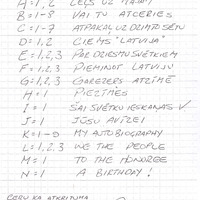 A = 1,2 CEĻŠ UZ MĀJĀM
B = 1-8 VAI TU ATCERIES
C = 1-7 ATPAKAĻ UZ DZIMTO SĒTU
D = 1,2 CIEMS "LATVIJA"
E = 1,2,3 PAR DZIESMU SVĒTKIEM
F = 1,2,3 PIEMINOT LATVIJU
G = 1,2,3 GAREZERS ATZĪMĒ
H = 1 PIEZĪMES
I = 1 ŠAI SVĒTKU IESKAŅAS
J = 1 JŪSU AVĪZEI
K = 1-9 MY AUTOBIOGRAPHY
L = 1,2,3 WE THE PEOPLE
M = 1 TO THE HONOREE
N = 1 A BIRTHDAY!
CERU KA ATKRITUMA